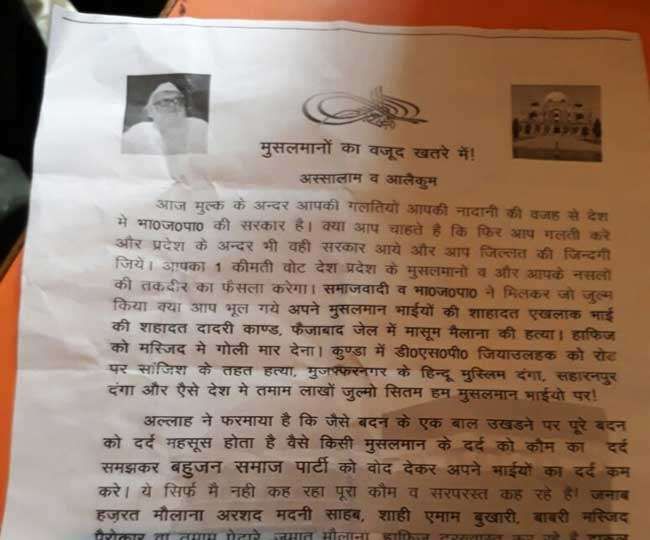 मुसलमानों का वजूद खतरे में!
अस्सालाम व आलैकुम
आज मुल्क के अन्दर आपकी गलतियों आपकी नादानी की वजह से देश
मे भा0ज0पा0 की सरकार है। क्या आप चाहते है कि फिर आप गलती करे
और प्रदेश के अन्दर भी वही सरकार आये और आप जिल्लत की जिन्दगी
जियें। आपका 1 कीमती वोट देश प्रदेश के मुसलमानो व और आपके नसलों
की तकदीर का फैसला करेगा। समाजवादी व भा0ज0पा0 ने मिलकर जो जुल्म
किया क्या आप भूल गये अपने मुसलमान भाईयों की शाहादत एखलाक भाई
की शहादत दादरी काण्ड, फैजाबाद जेल में मासूम मैलाना की हत्या। हाफिज
को मस्जिद मे गोली मार देना। कुण्डा में डी0एस0पी0 जियाउलहक को रोट
पर साजिश के तहत हत्या, मुजफ्फरनगर के हिन्दू मुस्लिम दंगा, सहारनपुर
दंगा और एैसे देश मे तमाम लाखों जुल्मो सितम हम मुसलमान भाईयो पर!
अल्लाह ने फरमाया है कि जैसे बदन के एक बाल उखडने पर पूरे बदन
को दर्द महसूस होता है वैसे किसी मुसलमान के दर्द को कौम का दर्द
समझकर बहुजन समाज पार्टी को वोद देकर अपने भाईयों का दर्द कम
करे। ये सिर्फ मै नही कह रहा पूरा कौम व सरपरस्त कह रहे है! जनाब
हजरत मौलाना अरशद मदनी साहब, शाही एमाम बुखारी, बाबरी मस्जिद
पैरोकार वा तमाम जमात मौलाना, हाफिज